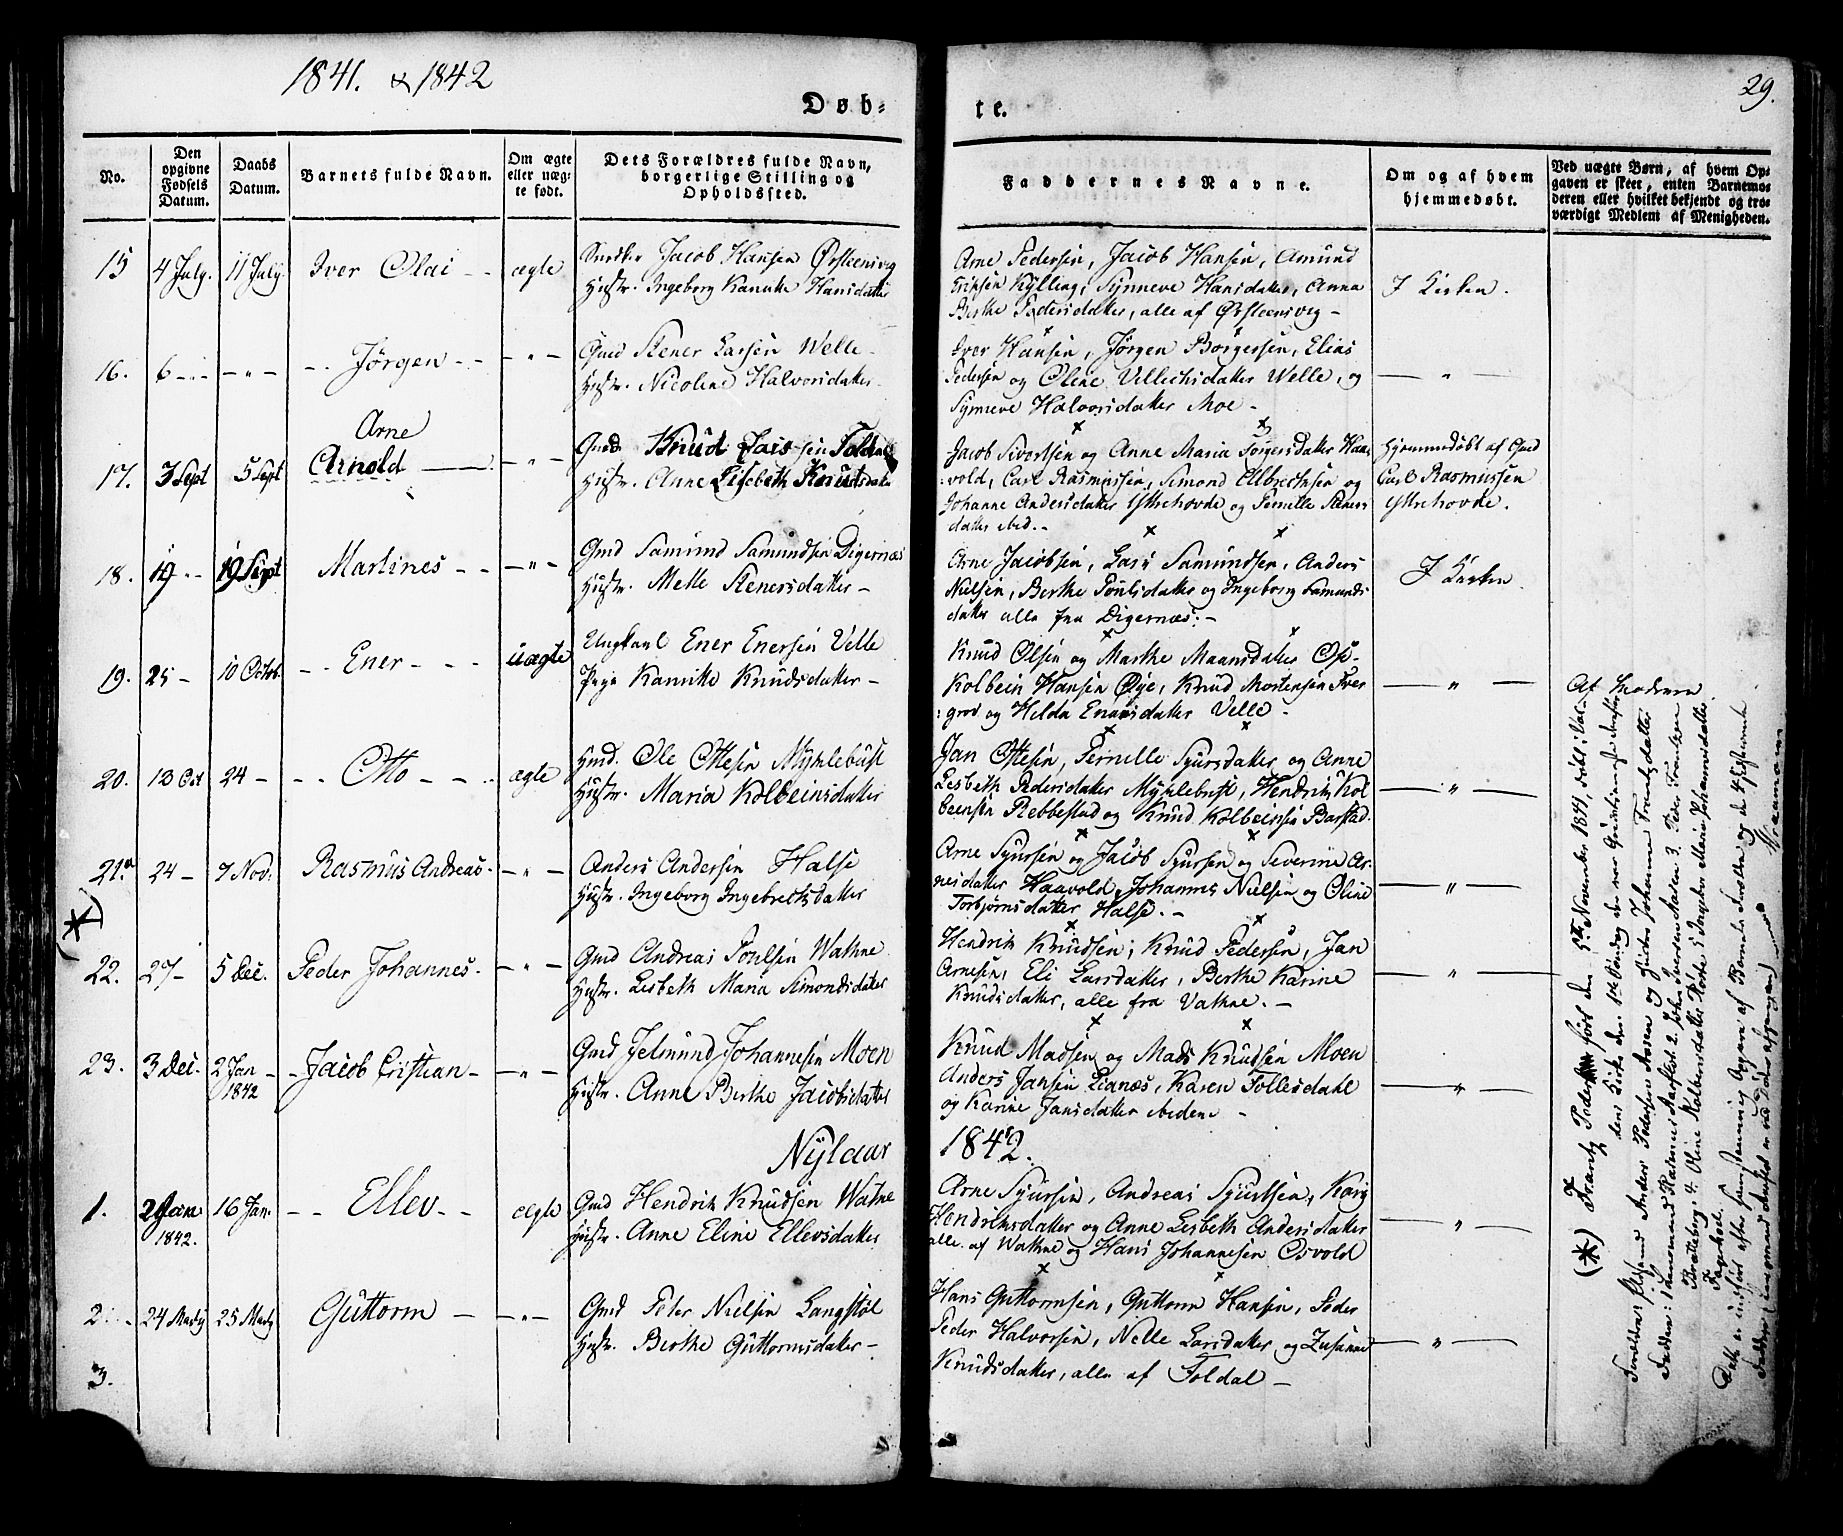 1841. & 1842
29.
Døb-
te.
No.
Den opgivne Fødsels Datum.
Daabs Datum.
Barnets fulde Navn.
Om ægte eller uæg-te født.
Dets Forældres fulde Navn, borgerlige Stilling og Opholdssted.
Faddernes Navne.
Om og af hvem hjemmedøbt.
Ved uægte Børn, af hvem Op-
gaven er skeet, enten Barnemo-
deren eller hvilket bekjendt og tro-
værdigt Medlem af Menigheden.
15 4 July. 11 July. Iver Olai - - ægte
Jacob Hansen Ørsteensvig
Hustr. Ingeborg Kanuke Hansdatter
Arne Pedersen, Jacob Hansen, Amund
Eriksen Kylling, Synneve Hansdatter, Anna
Berthe Pedersdatter, alle af Ørsteensvig -
I Kirken.
16. 6 - - - " - - - Jørgen - - - " -
Gmd Stener Larsen Welle -
Hustr. Nicoline Halvorsdatter -
Iver Hansen, Jørgen Borgersen, Elias
Pedersen og Oline Villechsdatter Welle, og
Synneve Halvorsdatter Moe -
- " -
17. 3 Sept 5 Sept Arne
Arnold - " -
Gmd Knud Larssen Foldal
Hustr. Anne Lisebeth Knutsdatter
Jacob Sivertsen og Anne Maria Torgersdatter Haa-
vold, Carl Rasmussen, Simond Elbrechsen og
Johanne Andersdatter Ytrehovde og Pernille Steners
datter ibid. -
Hjemmedøbt af Gmd
Carl Rasmussen
Ytrehovde.
18. 19 - - 19 Sept Martines - - - " -
Gmd Samund Samundsen Digernæs
Hustr. Mette Stenersdatter -
Arne Jacobsen, Lars Samundsen, Anders
Nielsen, Berthe Poulsdatter og Ingeborg Samunds
datter alle fra Digernæs: -
I Kirken.
19. 25 - 10 Octob. - - Ener - - - uægte
Ungkarl Ener Enersen Velle
Pige Kanutte Knudsdatter -
Knud Olsen og Marthe Maansdatter Ose -
Kolbein Hansen Øye, Knud Mortensen Fver
grov og Helda Enarsdatter Velle -
- " -
Af Moderen.
20. 13 Oct 24 - - - Otto - - - ægte
Hmd. Ole Ottesen Myhlebust
Hustr. Maria Kolbeinsdatter
Jan Ottesen, Pernelle Syursdatter og Anne
Lisbeth Pedersdatter Myhlebust, Hendrik Kol
beensen Rebbestad og Knud Kolbeinsen Barstad.
- " -
21. 24 - 7 Nov: Rasmus Andreas - - " -
Anders Andersen Halse
Hustr. Ingeborg Ingebrectsdatter
Arne Syursen og Jacob Syursen og Severine Ar-
nesdatter Haavold, Johannes Nielsen og Oline
Torbjørnsdatter Halse. -
- " -
(*)
22. 27 - 5 Dec. Peder Johannes - - " -
Gmd Andreas Poulsen Watne
Hustr. Lisbeth Maria Simondsdatter
Hendrik Knudsen, Knud Pedersen, Jan
Arnesen, Eli Larsdatter, Berthe Karine
Knudsdatter, alle fra Vatne. -
- " -
23. 3 Dec. 2 Jan - - Jacob Cristian - - " -
1842
Gmd Jetmund Johannesen Moen
Hustr. Anne Berthe Jacobsdatter
Knud Madsen og Mads Knudsen Moen
Anders Jansen Lianæs, Karen Follesdahl
og Karine Jansdatter ibidem -
- " -
Nylaar 1842.
1. 2 Jan 16 Jan. - - Ellev - - ægte
1842.
Gmd Hendrik Knudsen Watne
Hustr. Anne Eline Ellevsdatter
Arne Syursen, Andreas Syurtsen, Kary
Hendriksdatter og Anne Lisbeth Andersdatter
alle af Watne og Hans Johannesen Osvold
- " -
2. - 24 Marty 25 Marty Guttorm - - " -
Gmd Peter Nielsen Langstøl
Hustr. Berthe Guttormsdatter -
Hans Guttormsen, Guttorm Hansen, Peder
Peder Halvorsen, Nelle Larsdatter og Zusanne
Knudsdatter, alle af Foldal -
- " -
3.
(*) Frantz Peder født den 5te November 1841, døbt i Vol-
dens Kirke den
Forældre: Anders Pedersen Aasen og Hustru Johanne Frantzdatter
Faddere: 1 Rasmus Aarflot 2. John Iversen Aasen 3. Peder
Bratteberg 4. Oline Kolbensdatter 5 Maria Johannesdatter